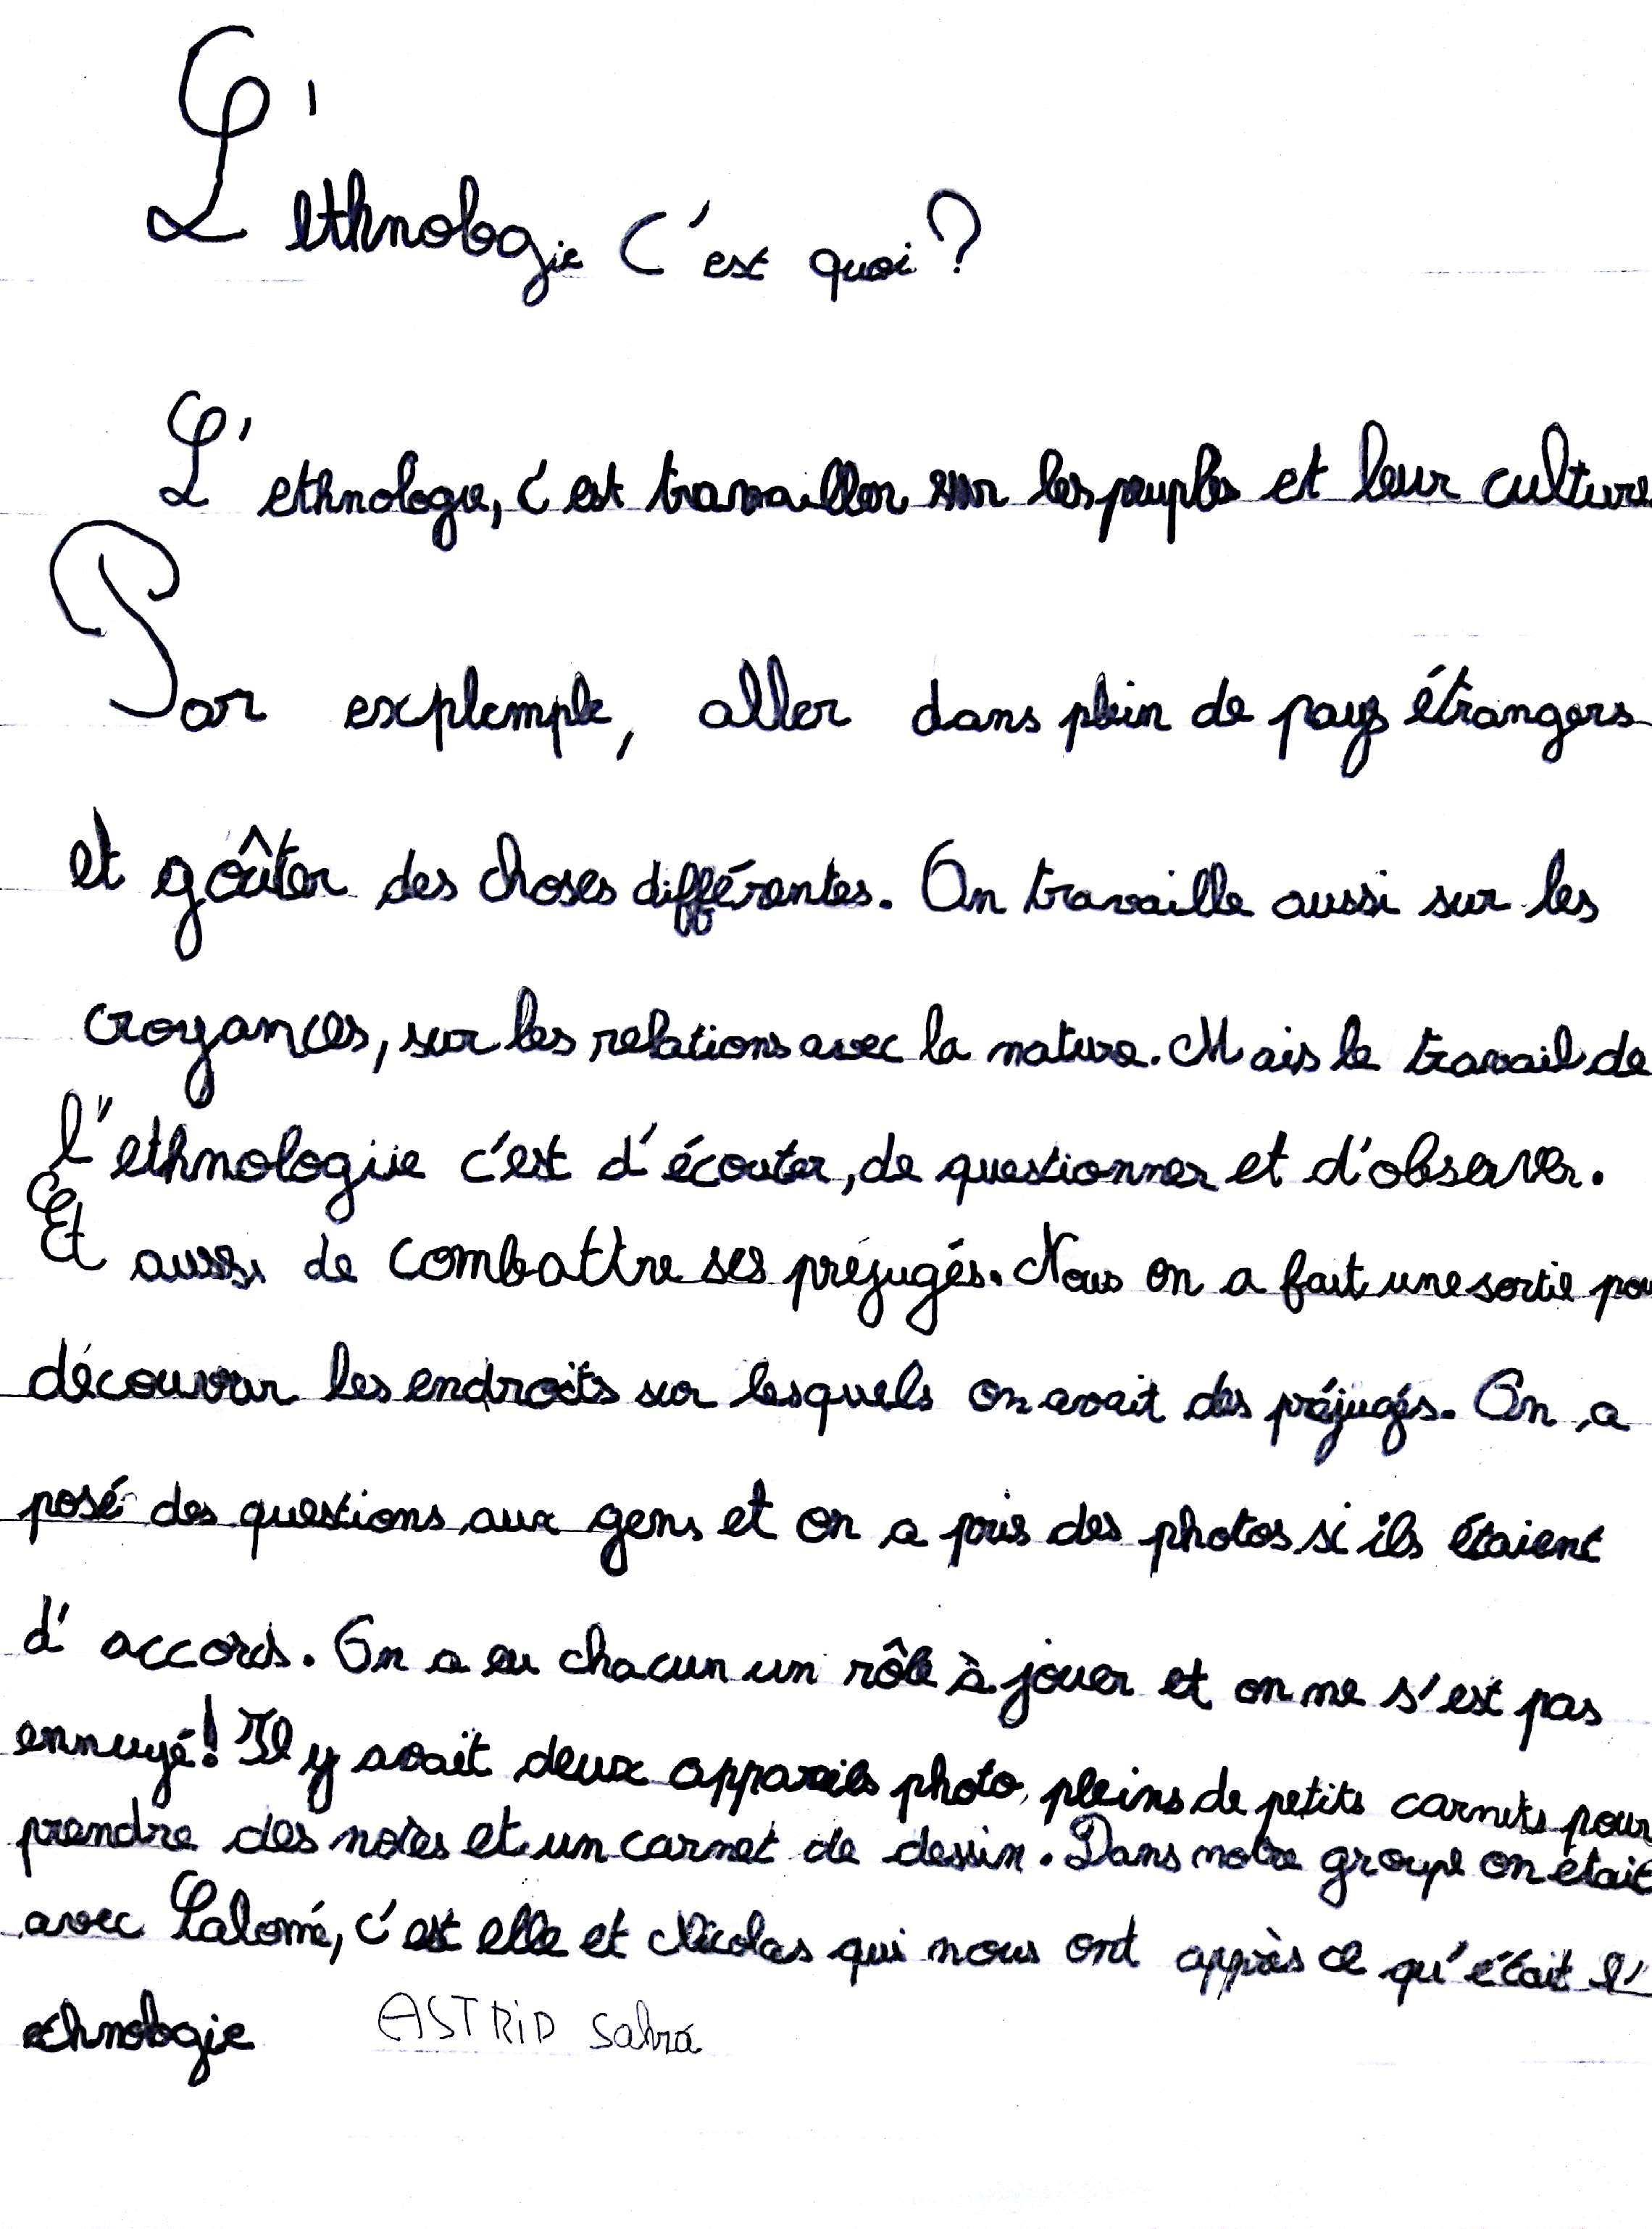 L'ethnologie C'est quoi ?
L'ethnologie, c'est travailler sur les peuples et leur culture
Par explemple, aller dans plein de pays étrangers
et goûter des choses différentes. On travaille aussi sur les
croyances, sur les relations avec la nature. Mais le travail de
l'ethnologie c'est d'écouter, de questionner et d'observer.
Et aussi de combattre ses préjugés. Nous on a fait une sortie pou
découvrir les endroits sur lesquels on avait des préjugés. On a
posé des questions aux gens et on a pris des photos si ils étaient
d'accords. On a eu chacun un rôle à jouer et on ne s'est pas
ennuyé! Il y avait deux appareils photo, pleins de petits carnets pour
prendre des notes et un carnet de dessin. Dans notre groupe on était
avec Salomé, c'est elle et Nicolas qui nous ont appris ce qu'était l'
ethnologie ASTRiD Sahra